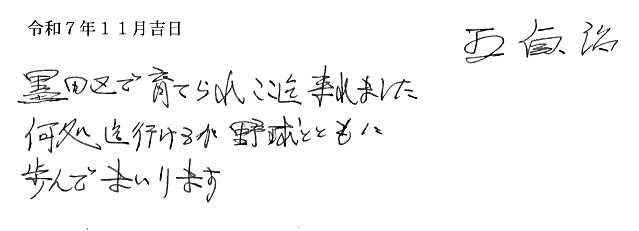 令和7年11月吉日
王貞治
墨田区で育てられここ迄来れました
何処迄行けるか野球とともに
歩んでまいります